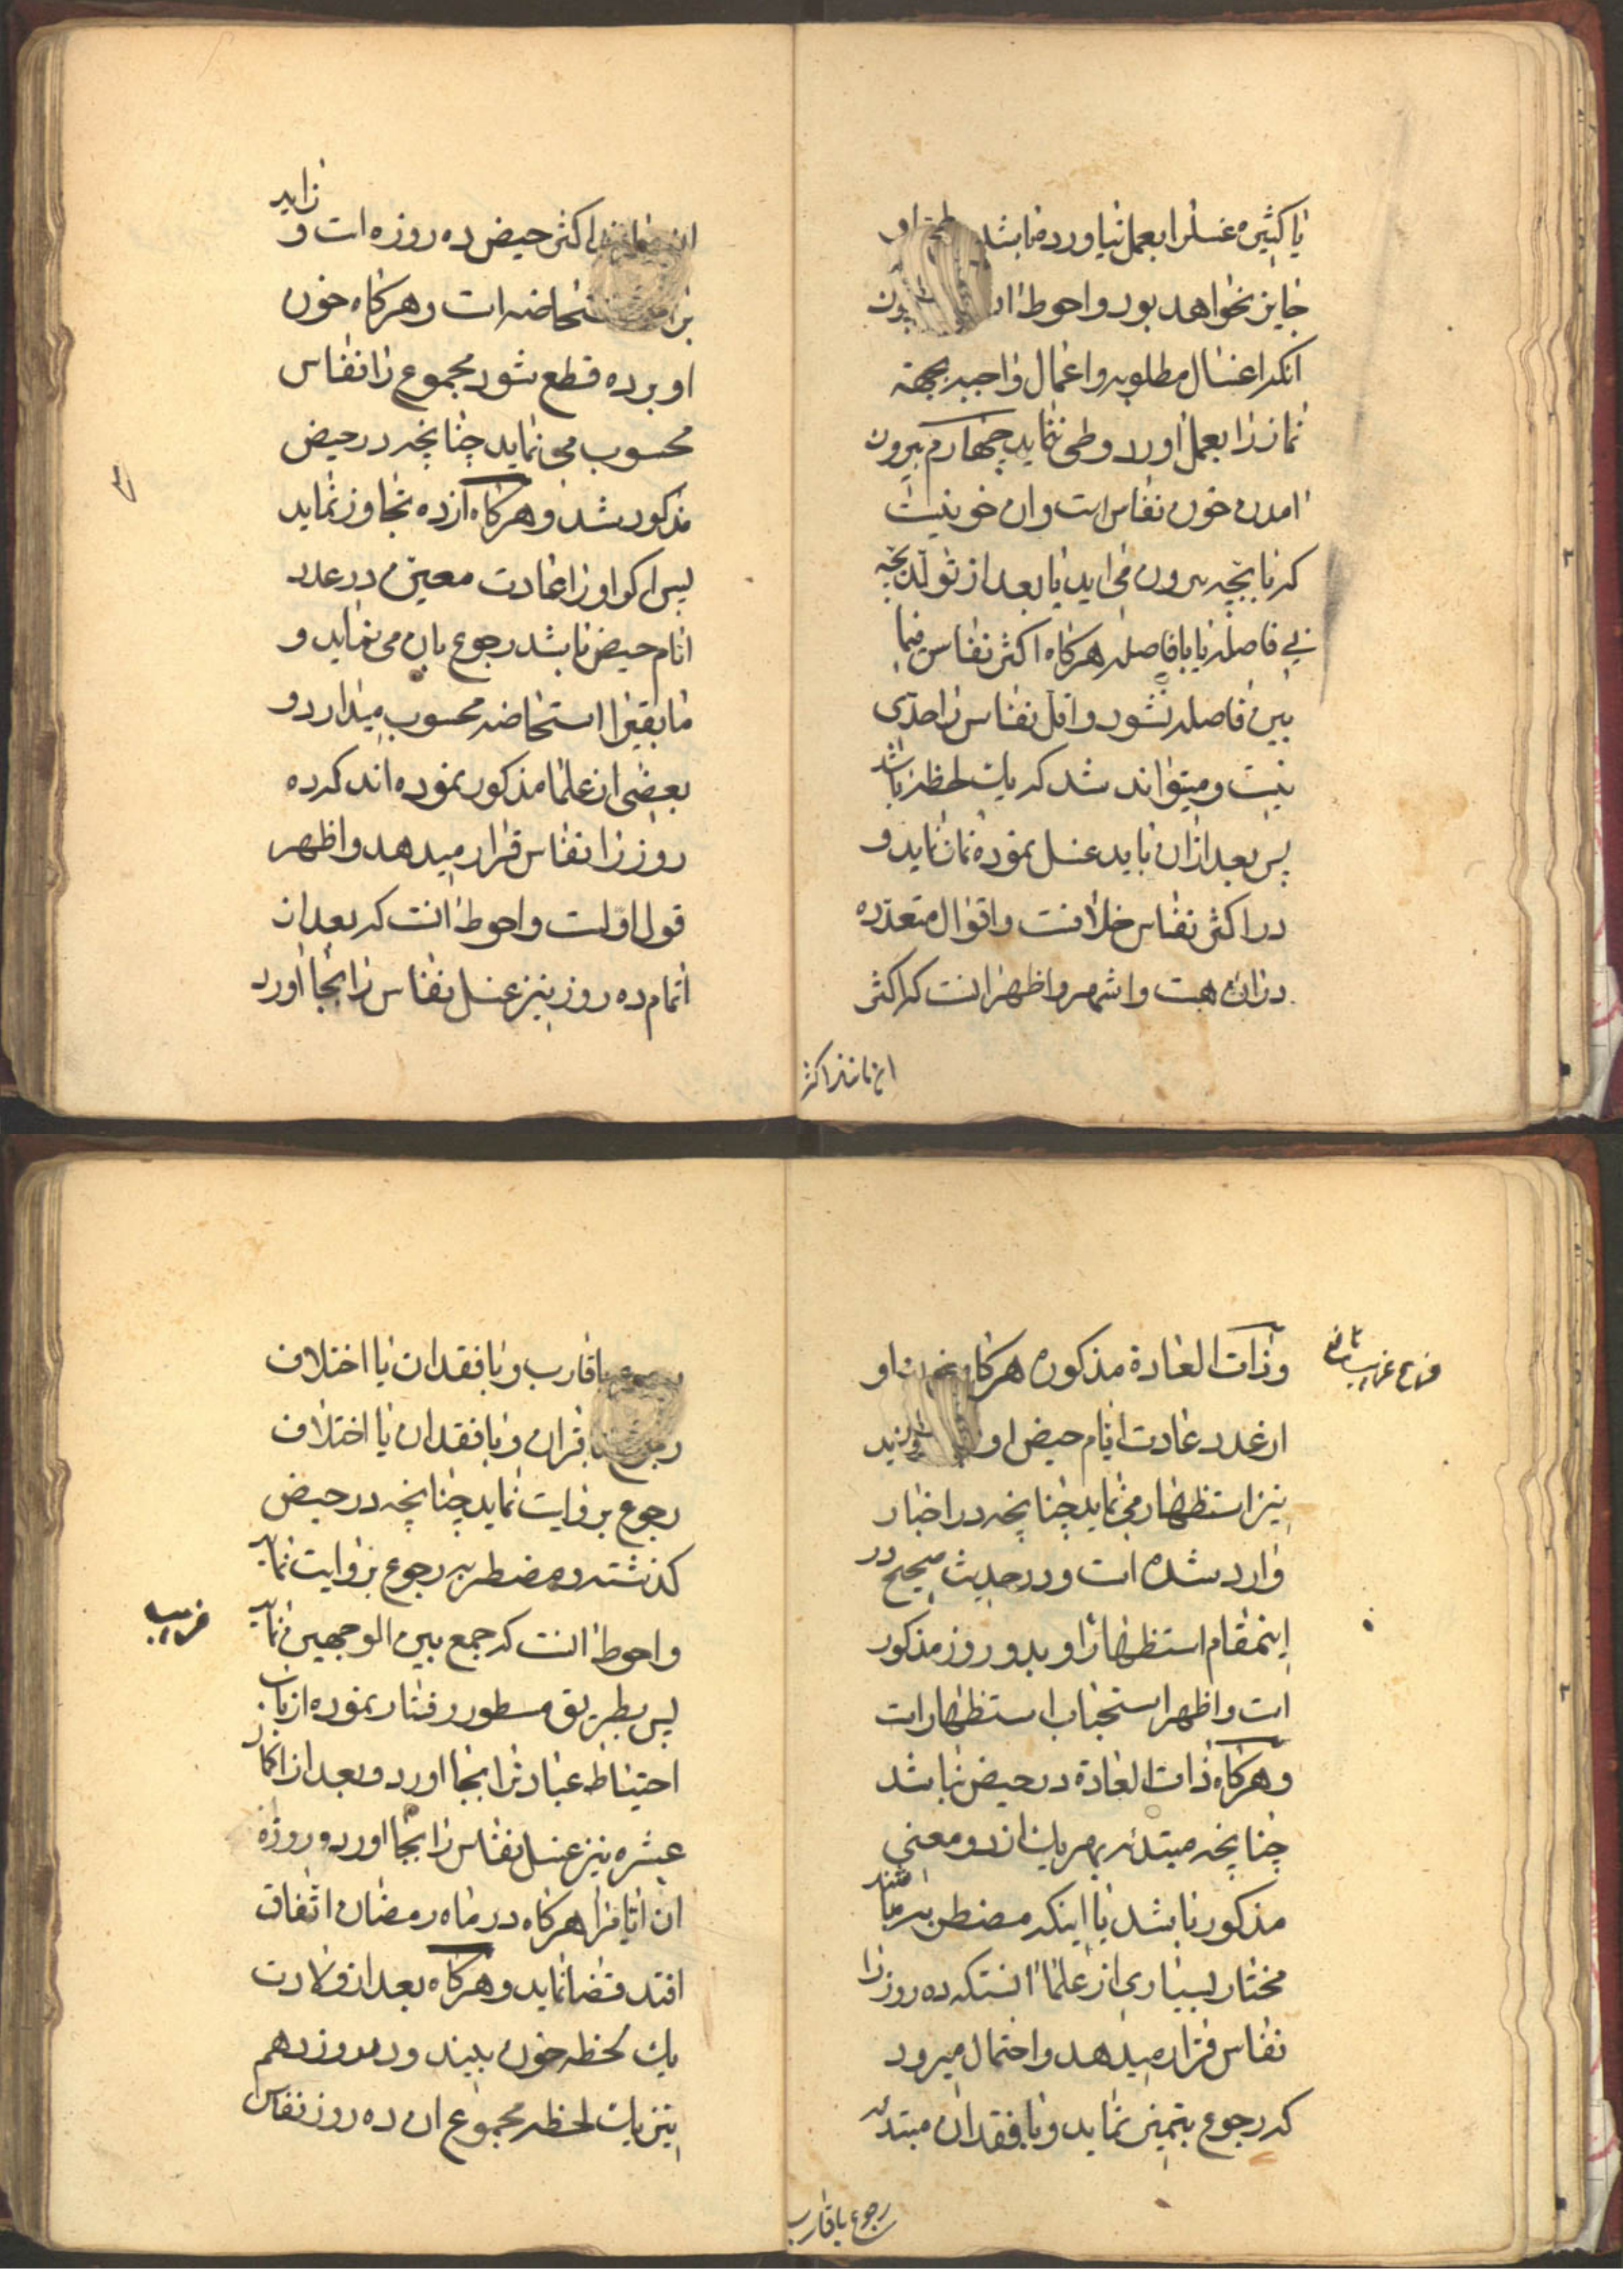 یا کثیره غسلرا بعمل نیاورده باشد او
جایز نخواهد بود و احوط
انکه اغسال مطلوبه و اعمال واجبه بجهة
نماز را بعمل اورد وطی ننماید چهارم بیرون
امدن خون نفاس است وان خونیست
که با بچه بیرون می اید یا بعد از تولد بچه
بی فاصله یا با فاصله هرکاه اکثر نفاس فیما
بین فاصله نشود و اقل نفاس را حدی
نیست و میتواند شد که یك لحظه باشد
پس بعد از ان باید غسل نموده نماز نماید و
در اکثر نفاس خلافست و اقوال متعدده
دران هست و اشهر و اظهر انست که اکثر
ان مانند اکثر
ان مانند اکثر حیض ده روزه است و زاید
بران استحاضه است و هرکاه خون
او بر ده قطع شود مجموع را نفاس
محسوب می نماید چنانچه در حیض
مذکور شد و هرکاه از ده تجاوز نماید
پس اکر او را عادت معین در عدد
ایام حیض باشد رجوع بان می نماید و
مابقی را استحاضه محسوب میدارد و
بعضی از علما مذکور نموده اند که ده
روز را نفاس قرار میدهد و اظهر
قول اوّلست و احوط انست که بعد از
اتمام ده روز نیز غسل نفاس را بجا اورد
وذات العادة مذکوره هرکاه خون او
از عدد عادت ایام حیض او
نیز استظهار می نماید چنانچه در اخبار
وارد شده است و در حدیث صحیح در
اینمقام استظهار او بدو روز مذکور
است و اظهر استحباب استظهار است
و هرکاه ذات العادة در حیض نباشد
چنانچه مبتدئه بهر یك از دو معنی
مذکور باشد یا اینکه مضطربه باشد
مختار بسیاری از علما انستکه ده روز را
نفاس قرار میدهد و احتمال میرود
که رجوع بتمیز نماید و با فقدان مبتدئه
رجوع باقارب
رجوع باقارب و با فقدان یا اختلاف
رجوع باقران و با فقدان یا اختلاف
رجوع بروایت نماید چنانچه در حیض
کذشت و مضطربه رجوع بروایت نماید
و احوط انست که جمع بین الوجهین نماید
پس بطریق مسطور رفتار نموده از باب
احتیاط عبادت را بجا اورد و بعد از اکمال
عشره نیز غسل نفاس را بجا اورد و روزه
ان ایام را هرکاه در ماه رمضان اتفاق
افتد قضا نماید و هرکاه بعد از ولادت
یك لحظه خون بیند و در روز دهم
نیز یك لحظه مجموع ان ده روز نفاس